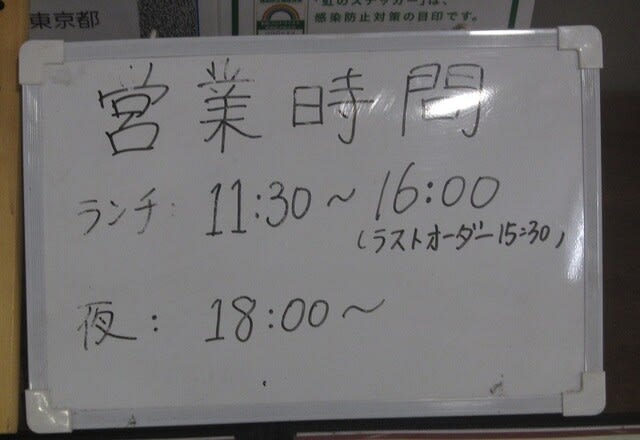 東京都
「虹のステッカー」は、
感染防止対策の目印です。
営業時間
ランチ: 11:30～16:00
(ラストオーダー15:30)
夜: 18:00～